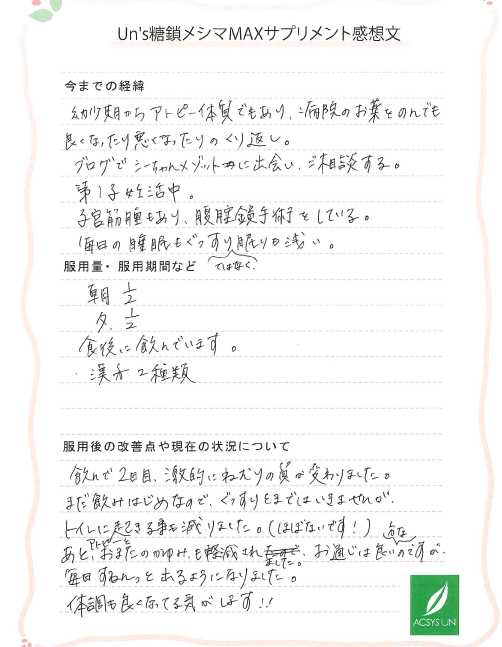 Un's糖鎖メシマMAXサプリメント感想文
今までの経緯
幼少期からアトピー体質でもあり、病院のお薬をのんでも
良くなったり悪くなったりのくり返し。
ブログでシーちゃんメゾットに出会い、ご相談する。
第1子妊活中。
子宮筋腫もあり、腹腔鏡手術をしている。
毎日の睡眠もぐっすり眠りも浅い。
ではなく、
服用量・服用期間など
朝 1/2
夕 1/2
食後に飲んでいます。
・漢方2種類
服用後の改善点や現在の状況について
飲んで2日目、激的にねむりの質が変わりました。
まだ飲みはじめなので、ぐっすりとまではいきませんが、
トイレに起きる事も減りました。(ほぼないです!)
あと、アトピーとおまたのかゆみも軽減されました。お通じは良いのですが、
毎日するんっと出るようになりました。
体調も良くなってる気がします!!
ACSYS UN